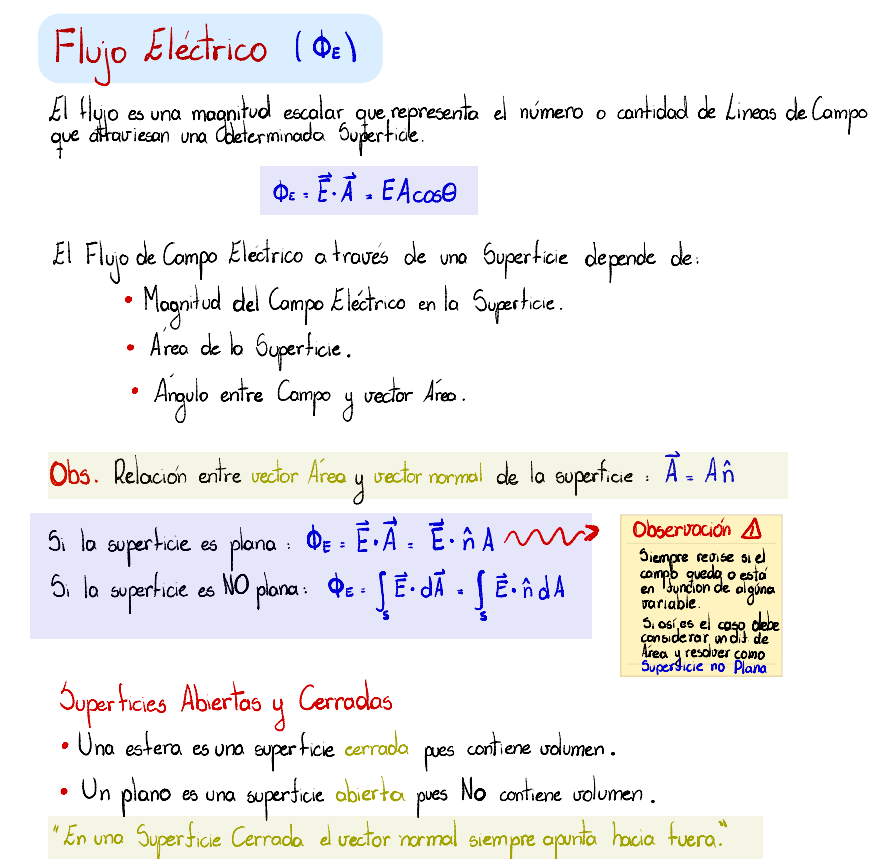 Flujo Eléctrico (ΦE)
El flujo es una magnitud escalar que representa el número o cantidad de Lineas de Campo
que atraviesan una determinada Superficie.
ΦE = E⃗ · A⃗ = EAcosθ
El Flujo de Campo Eléctrico a través de una Superficie depende de:
• Magnitud del Campo Eléctrico en la Superficie.
• Área de la Superficie.
• Ángulo entre Campo y vector Área.
Obs. Relación entre vector Área y vector normal de la superficie : A⃗ = A n̂
Si la superficie es plana : ΦE = E⃗ · A⃗ = E⃗ · n̂ A
Si la superficie es NO plana: ΦE = ∫s E⃗ · dA⃗ = ∫s E⃗ · n̂ dA
Observación ⚠
Siempre revise si el
campo queda o está
en función de alguna
variable.
Si así es el caso debe
considerar un dif. de
Área y resolver como
Superficie no Plana
Superficies Abiertas y Cerradas
• Una esfera es una superficie cerrada pues contiene volumen.
• Un plano es una superficie abierta pues No contiene volumen.
"En una Superficie Cerrada el vector normal siempre apunta hacia fuera."